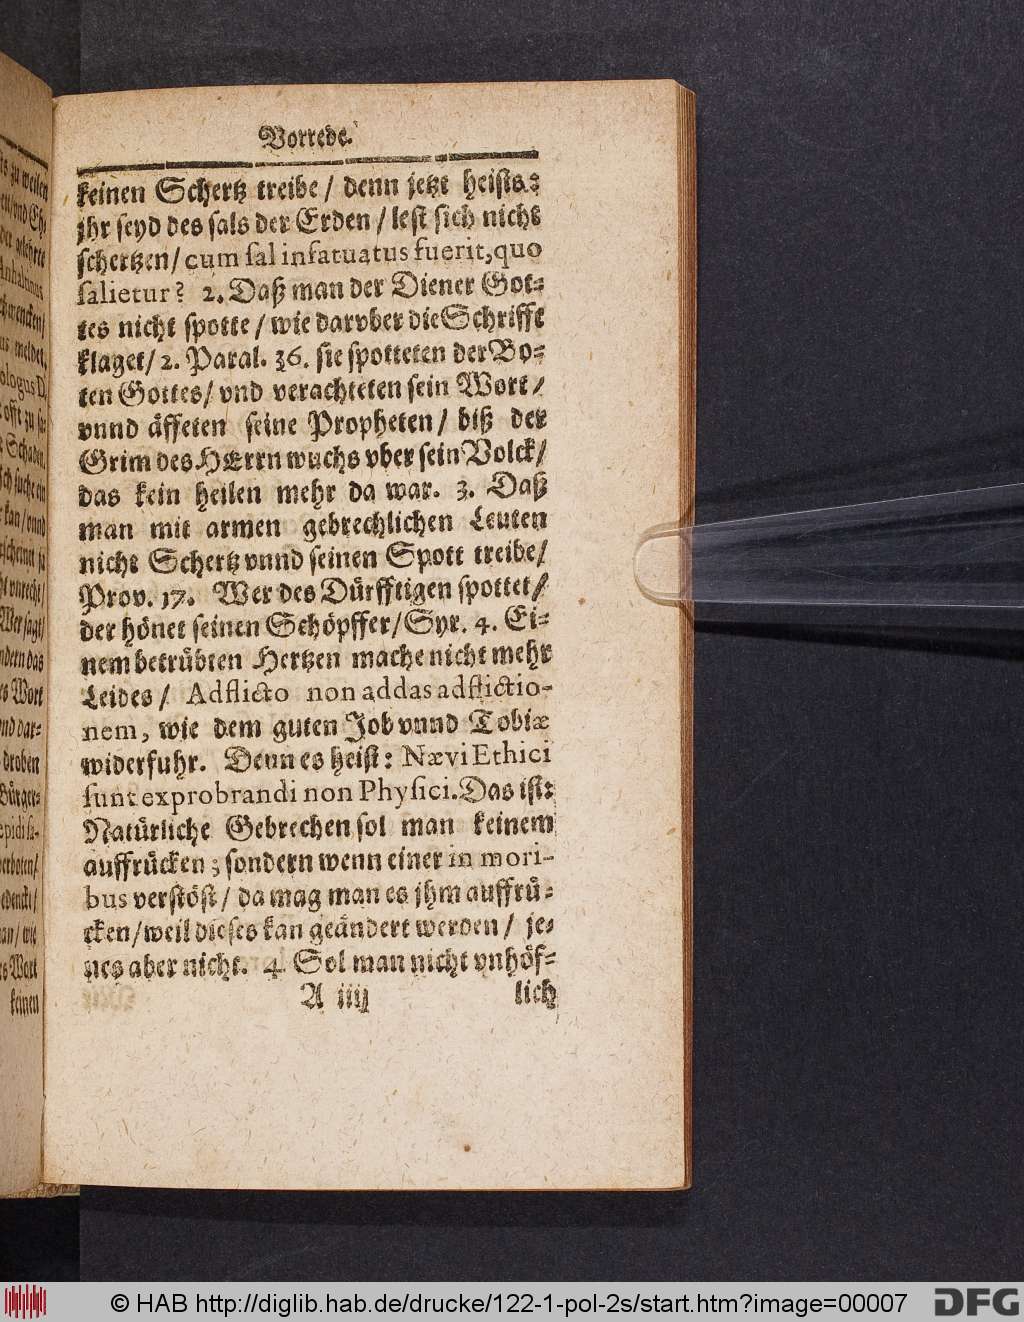 Vorrede.
keinen Schertz treibe / denn jetzt heists:
jhr seyd des sals der Erden / lest sich nicht
schertzen / cum sal infatuatus fuerit, quo
salietur? 2. Daß man der Diener Got-
tes nicht spotte / wie darvber die Schrifft
klaget / 2. Paral. 36. sie spotteten der Bo-
ten Gottes / vnd verachteten sein Wort /
vnnd äffeten seine Propheten / biß der
Grim des HErrn wuchs vber sein Volck /
das kein heilen mehr da war. 3. Daß
man mit armen gebrechlichen Leuten
nicht Schertz vnnd seinen Spott treibe /
Prov. 17. Wer des Dürfftigen spottet /
der hönet seinen Schöpffer / Syr. 4. Ei-
nem betrübten Hertzen mache nicht mehr
Leides / Adflicto non addas adflictio-
nem, wie dem guten Job vnnd Tobiæ
widerfuhr. Denn es heist: Nævi Ethici
sunt exprobrandi non Physici. Das ist:
Natürliche Gebrechen sol man keinem
auffrücken; sondern wenn einer in mori-
bus verstöst / da mag man es jhm auffrü-
cken / weil dieses kan geändert werden / je-
nes aber nicht. 4 Sol man nicht vnhöf-
A iiij lich
ts zu weilen
meldet,
Schaden,
Wer sagt /
ndern das
es Wort
nd dar-
droben
Bürger-
verboten /
edenckt /
man / wie
es Wort
keinen
© HAB http://diglib.hab.de/drucke/122-1-pol-2s/start.htm?image=00007
DFG